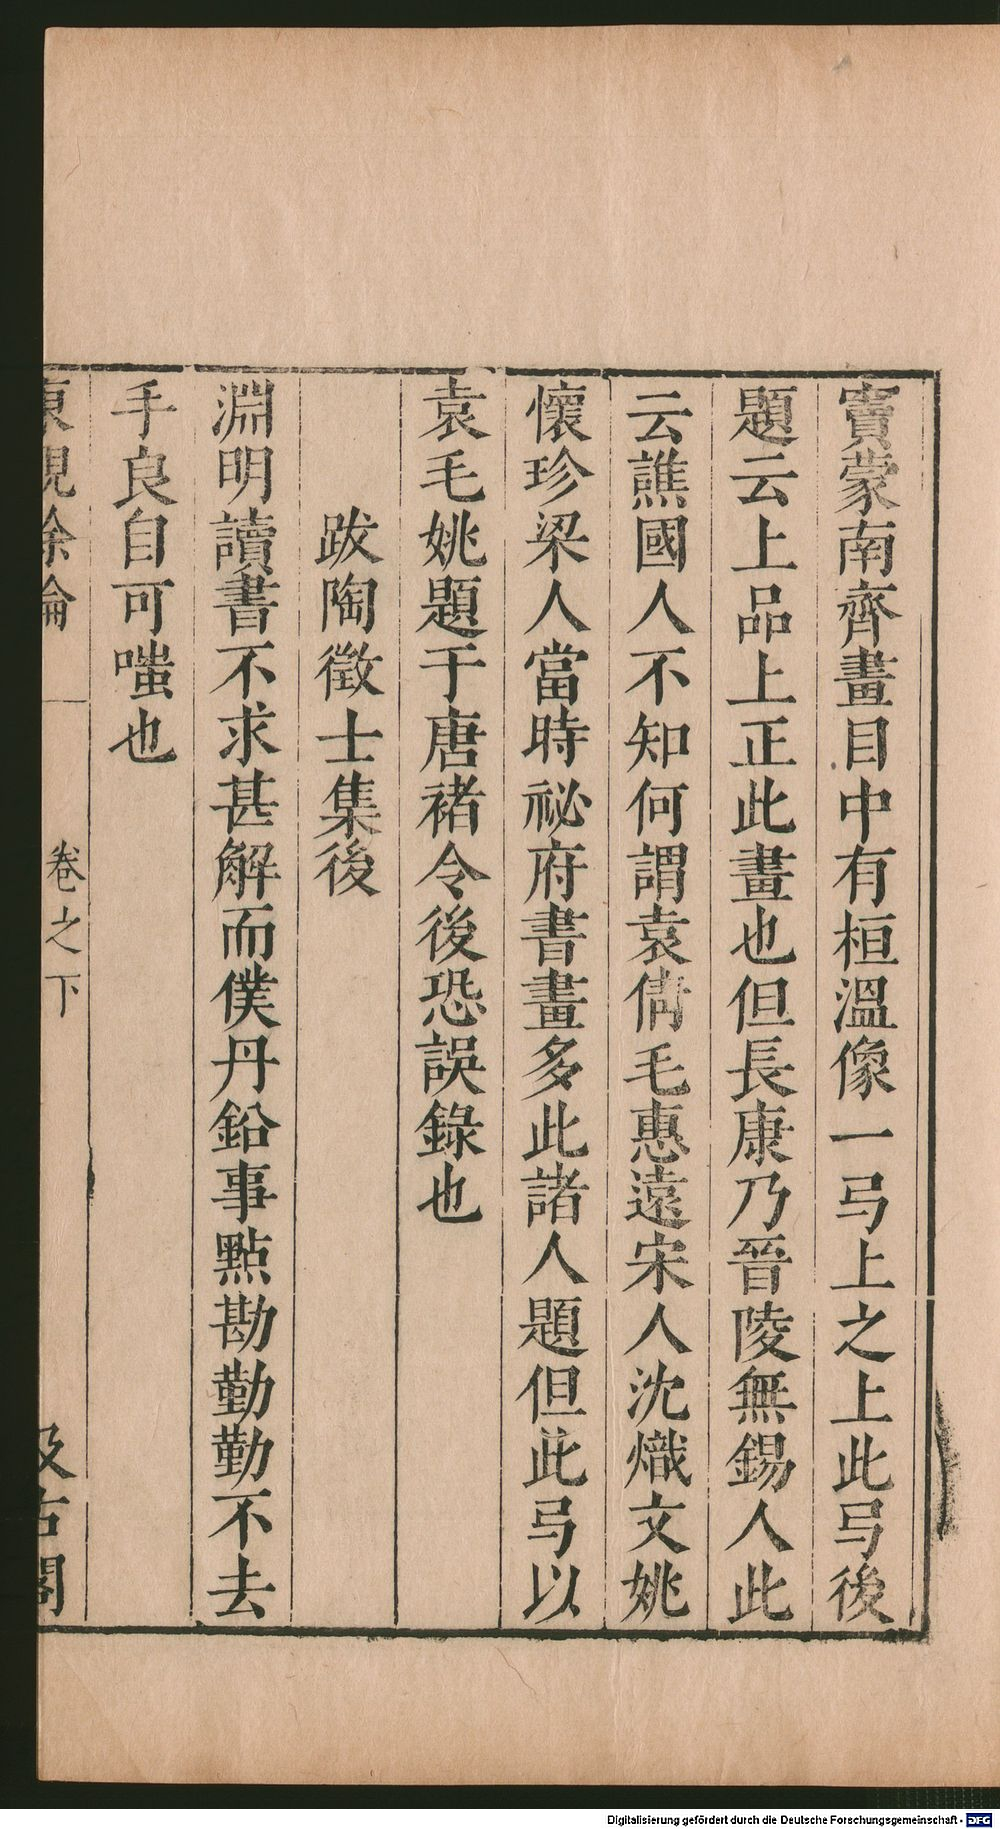 竇蒙南齊畫目中有桓溫像一弓上之上此弓後
題云上品上正此畫也但長康乃晉陵無錫人此
云譙國人不知何謂袁倩毛惠遠宋人沈熾文姚
懷珍梁人當時祕府書畫多此諸人題但此弓以
袁毛姚題于唐褚令後恐誤錄也
跋陶徵士集後
淵明讀書不求甚解而僕丹鉛事點勘勤勤不去
手良自可嗤也
東觀余論
卷之下
汲古閣
Digitalisierung gefördert durch die Deutsche Forschungsgemeinschaft - DFG